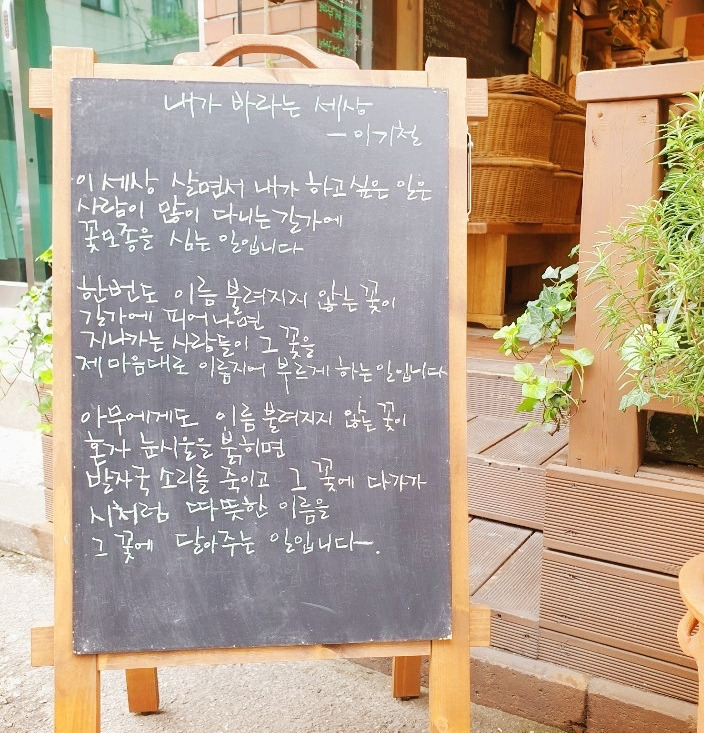 내가 바라는 세상
- 이기철
이 세상 살면서 내가 하고 싶은 일은
사람이 많이 다니는 길가에
꽃모종을 심는 일입니다
한번도 이름 불려지지 않는 꽃이
길가에 피어나면
지나가는 사람들이 그 꽃을
제 마음대로 이름지어 부르게 하는 일입니다
아무에게도 이름 불려지지 않는 꽃이
혼자 눈시울을 붉히면
발자국 소리를 죽이고 그 꽃에 다가가
시처럼 따뜻한 이름을
그 꽃에 달아주는 일입니다.